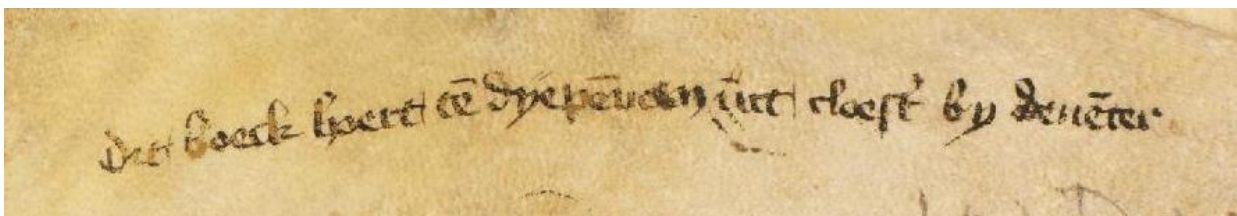 dit boeck hoert tē dyepēueen int cloest' by deuēter